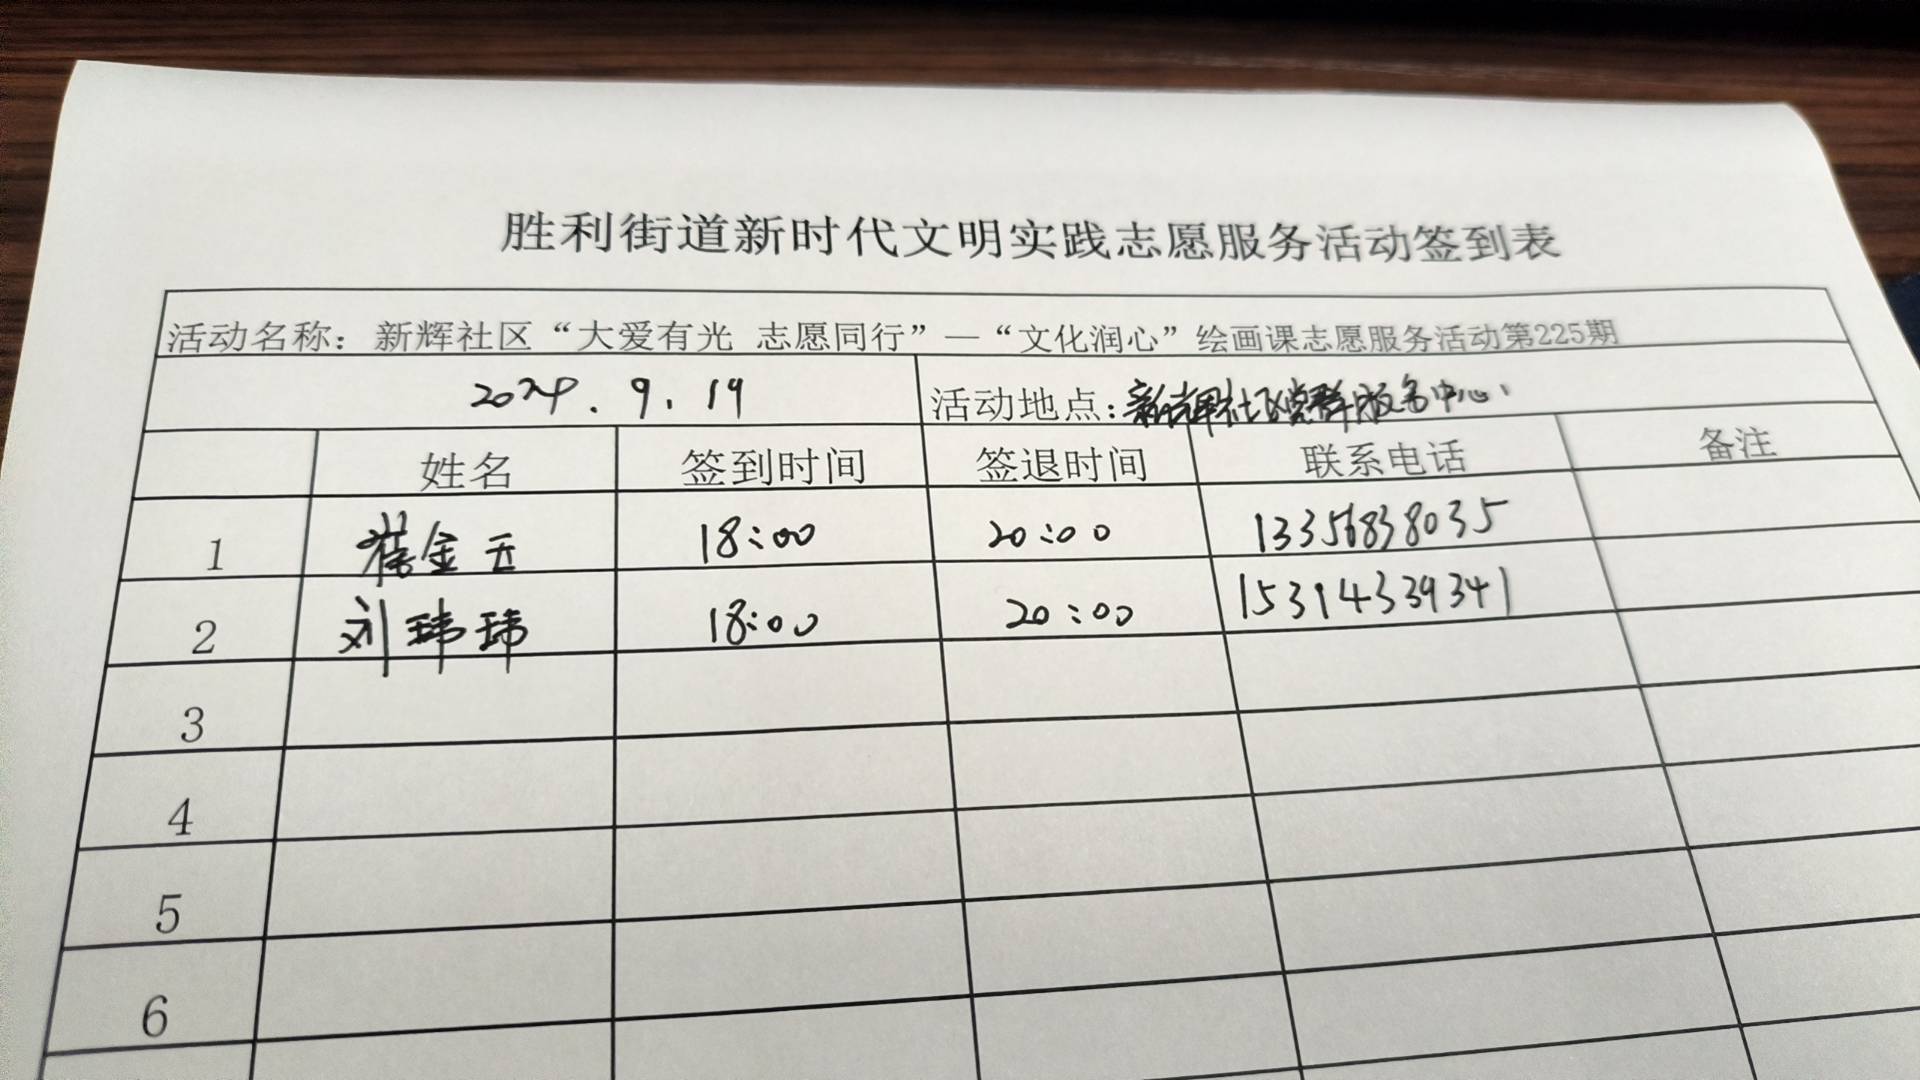 胜利街道新时代文明实践志愿服务活动签到表
活动名称：新辉社区“大爱有光 志愿同行”—“文化润心”绘画课志愿服务活动第225期
2024.9.19 活动地点：新辉社区党群服务中心
姓名 签到时间 签退时间 联系电话 备注
1 金玉 18:00 20:00 13356838035
2 刘玮玮 18:00 20:00 15314339341
3
4
5
6